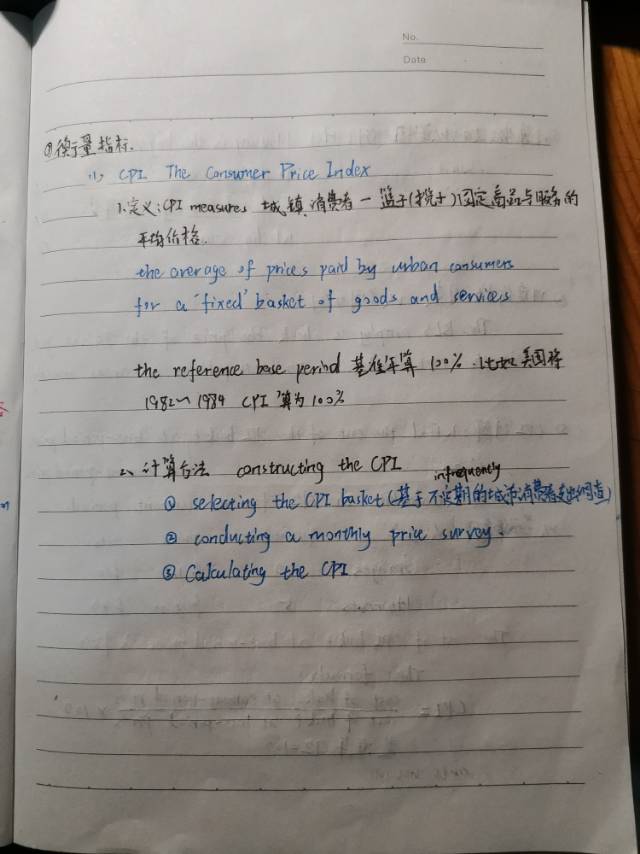 No.
Date
①衡量指标.
(1), CPI The Consumer Price Index
1.定义:CPI measures 城镇消费者一篮子(揽子)固定商品与服务的
平均价格.
the average of prices paid by urban consumers
for a "fixed" basket of goods and services
the reference base period 基准年算 100%. 比如美国将
1982~1984 CPI 算为100%
2、计算方法 constructing the CPI
infrequently
① selecting the CPI basket (基于不定期的城市消费者支出调查)
② conducting a monthly price survey.
③ Calculating the CPI